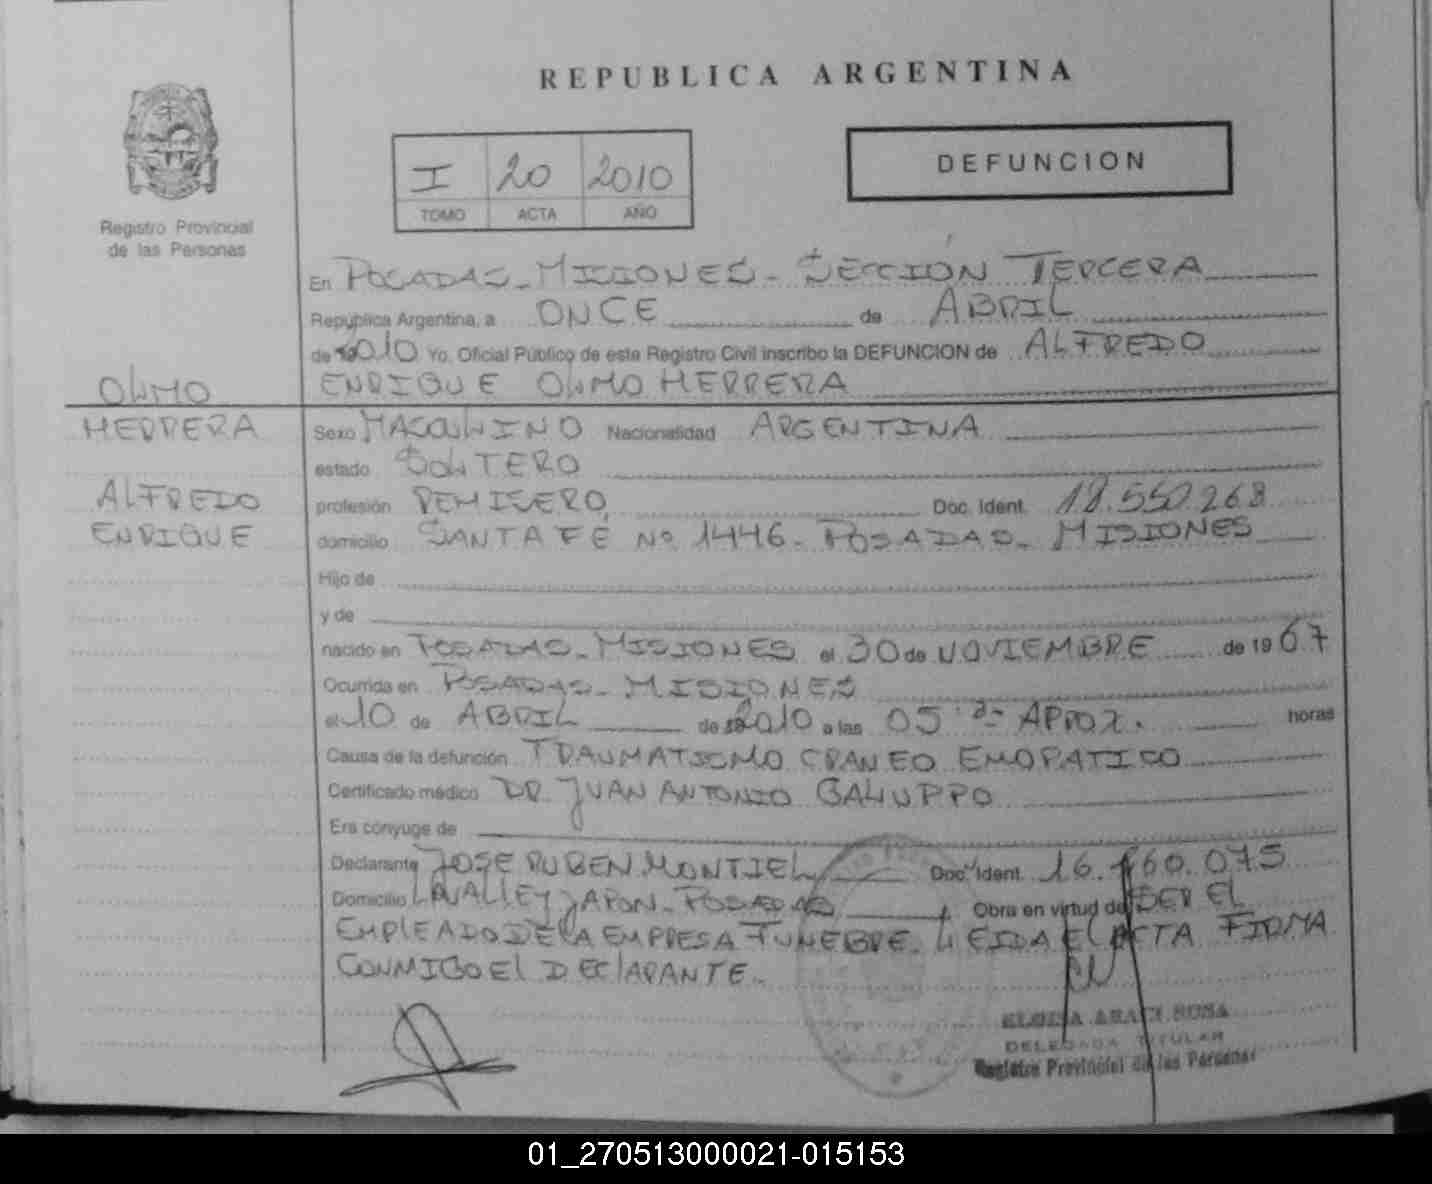 REPUBLICA ARGENTINA
I 20 2010
TOMO ACTA AÑO
DEFUNCION
Registro Provincial
de las Personas
En POSADAS - MISIONES - SECCIÓN TERCERA
República Argentina, a ONCE de ABRIL
de 2010 Yo, Oficial Público de este Registro Civil inscribo la DEFUNCION de ALFREDO
ENRIQUE OLMO HERRERA
OLMO
HERRERA
ALFREDO
ENRIQUE
Sexo MASCULINO Nacionalidad ARGENTINA
estado SOLTERO
profesión REMISERO Doc. Ident. 18.550.268
domicilio SANTA FÉ Nº 1446 - POSADAS - MISIONES
Hijo de
y de
nacido en POSADAS - MISIONES el 30 de NOVIEMBRE de 1967
Ocurrida en POSADAS - MISIONES
el 10 de ABRIL de 2010 a las 05 APROX. horas
Causa de la defunción TRAUMATISMO CRANEO EMOPATICO
Certificado médico DR. JUAN ANTONIO GALUPPO
Era cónyuge de
Declarante JOSE RUBEN MONTIEL Doc. Ident. 16. 60.075
Domicilio LAVALLE Y JAPON - POSADAS Obra en virtud de SER EL
EMPLEADO DE LA EMPRESA FUNEBRE. LEIDA EL ACTA FIRMA
CONMIGO EL DECLARANTE.
ELOISA ARACI SOSA
DELEGADA TITULAR
Registro Provincial de las Personas
01_270513000021-015153